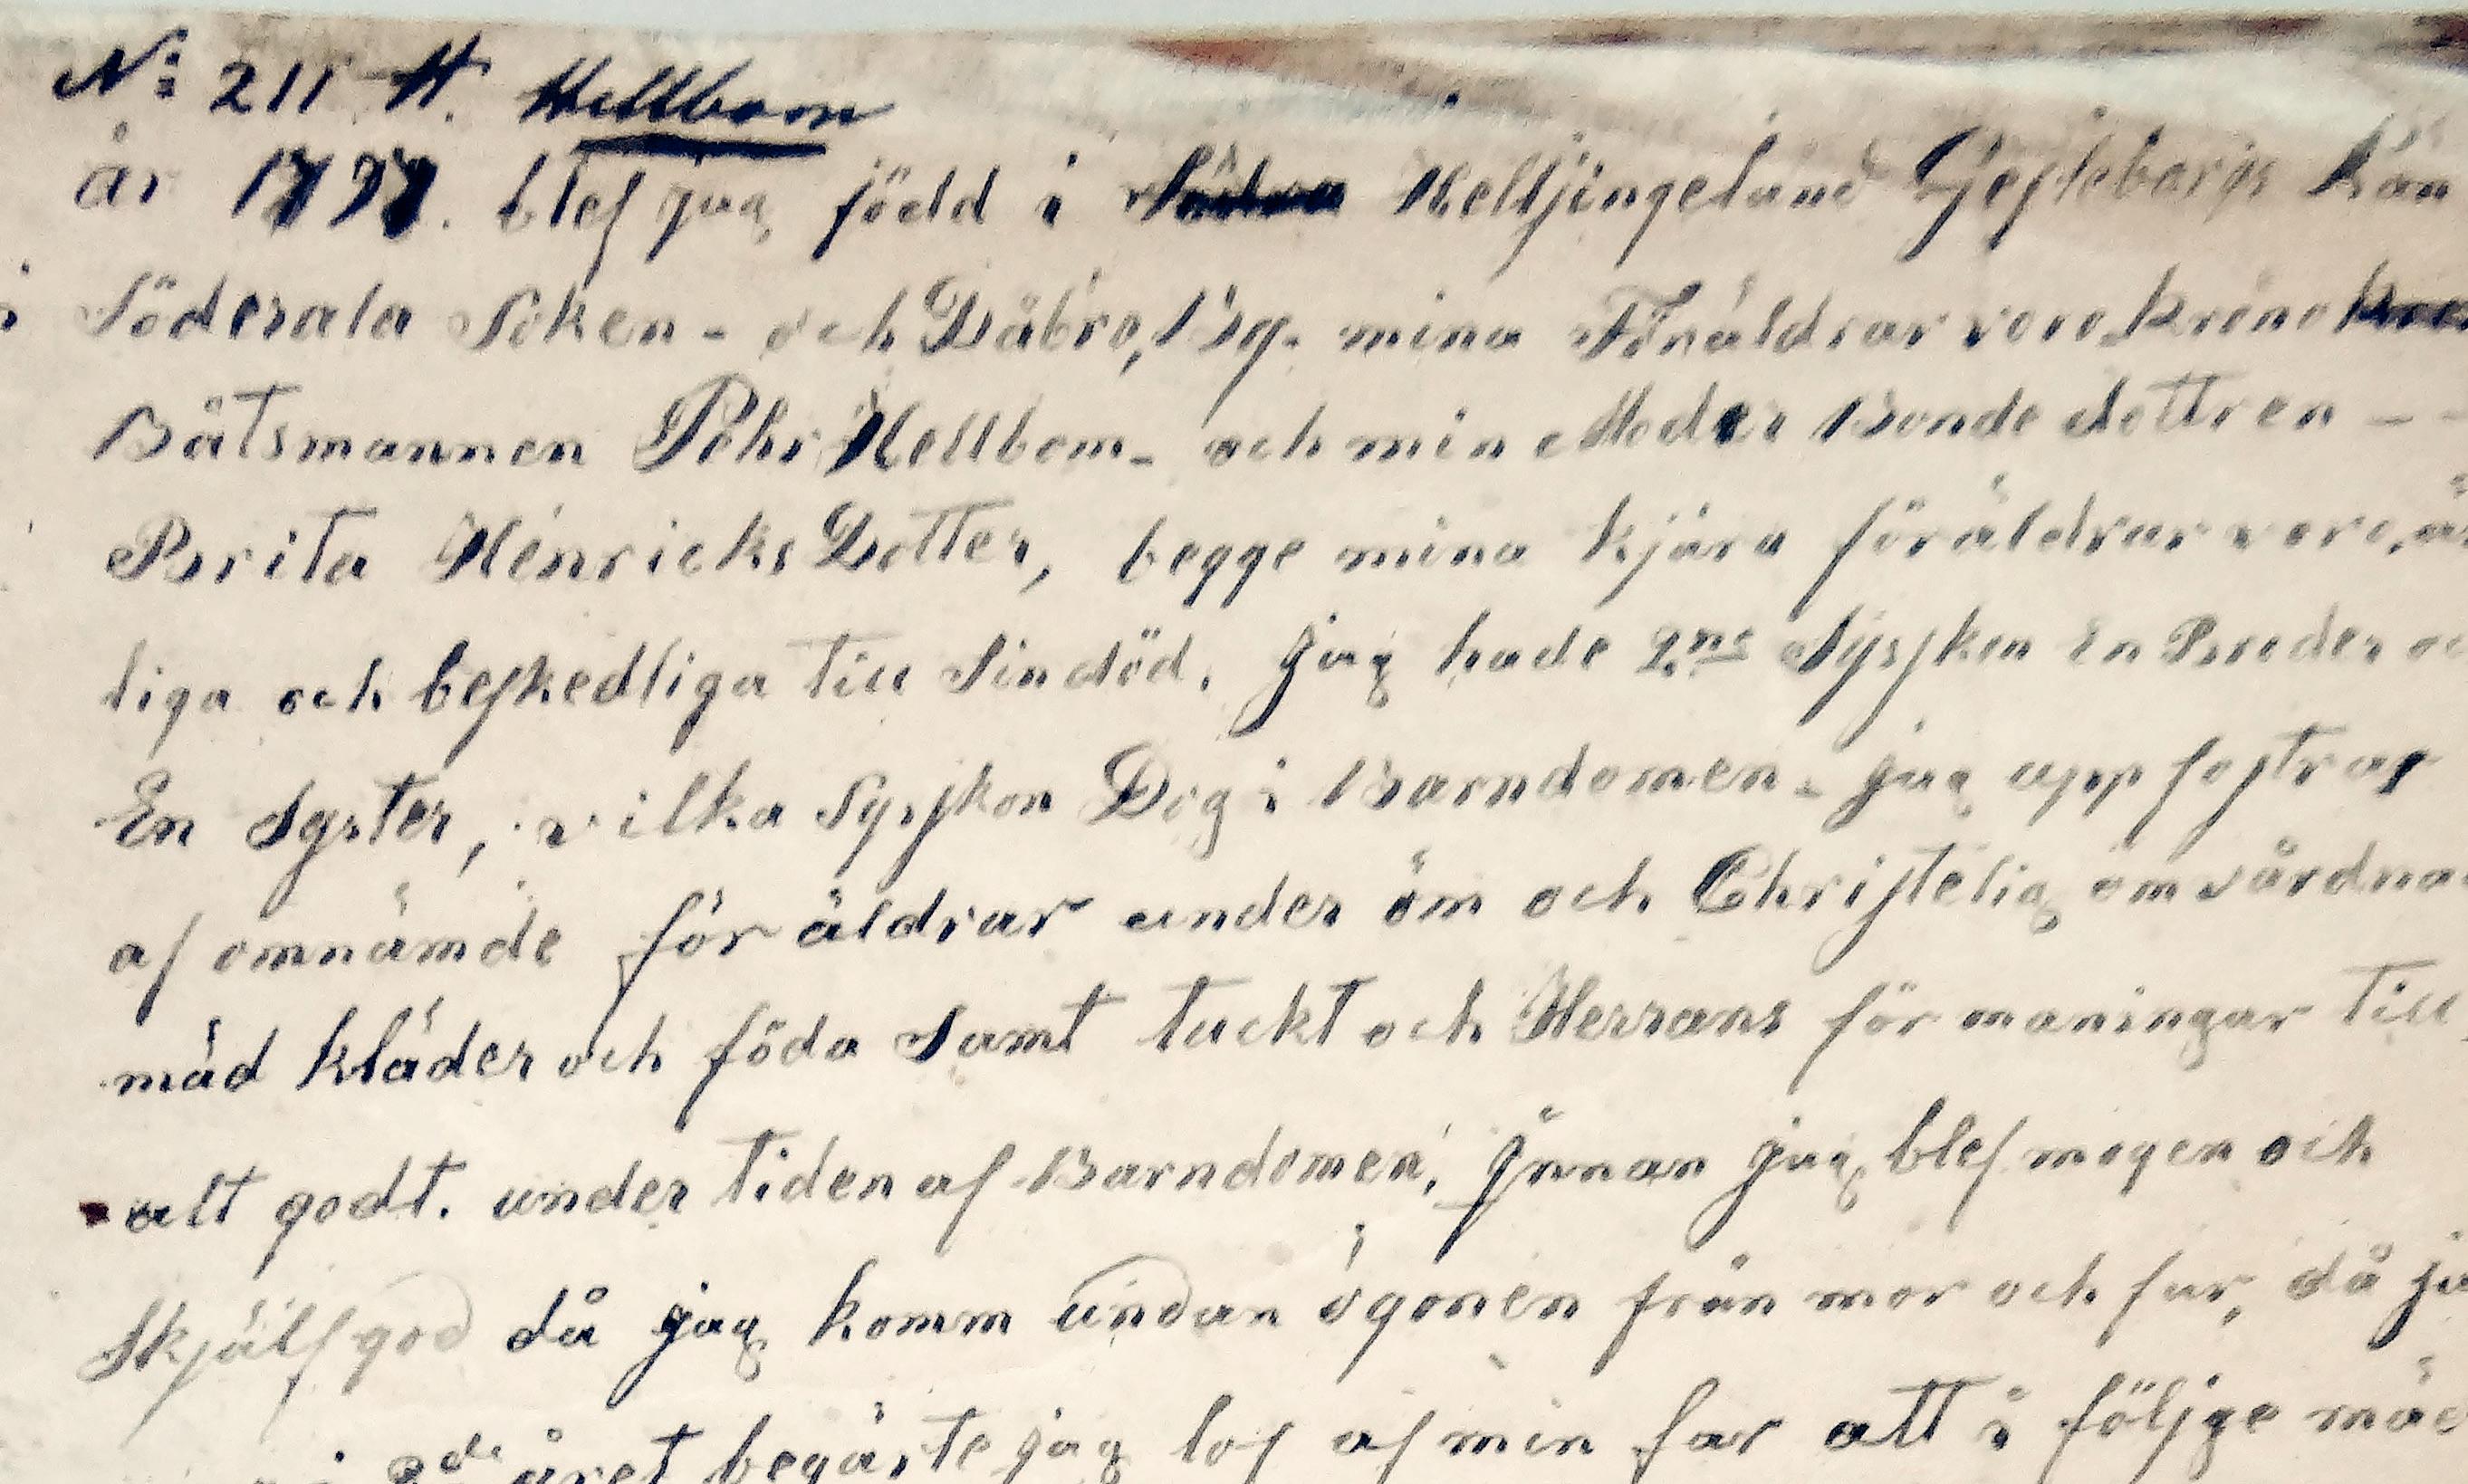 N: 211 H. Hellbom
år blef jag född i Helsingeland Gefleborgs Län
i Söderala Soken - och Dåbro, By. mina Föräldrar voro Krono
Båtsmannen Pehr Hellbom - och min Moder Bonde dottren - -
Brita Hènricks Dotter, begge mina kjära föräldrar voro, är
liga och beskedliga till Sin död. Jag hade 2ne Sysskon En Broder oc
En Syster, vilka Sysskon Dog i Barndomen - jag uppfostras
af omnämde för äldrar under öm och Christelig omvårdna
mäd kläder och föda Samt tuckt och Herrans för maningar till
alt godt. under tiden af Barndomen, Innan jag blef mogen och
Skjälfgod då jag komm undan ögonen från mor och far, då ja
2de året begärte jag lof af min far att i följge mäd